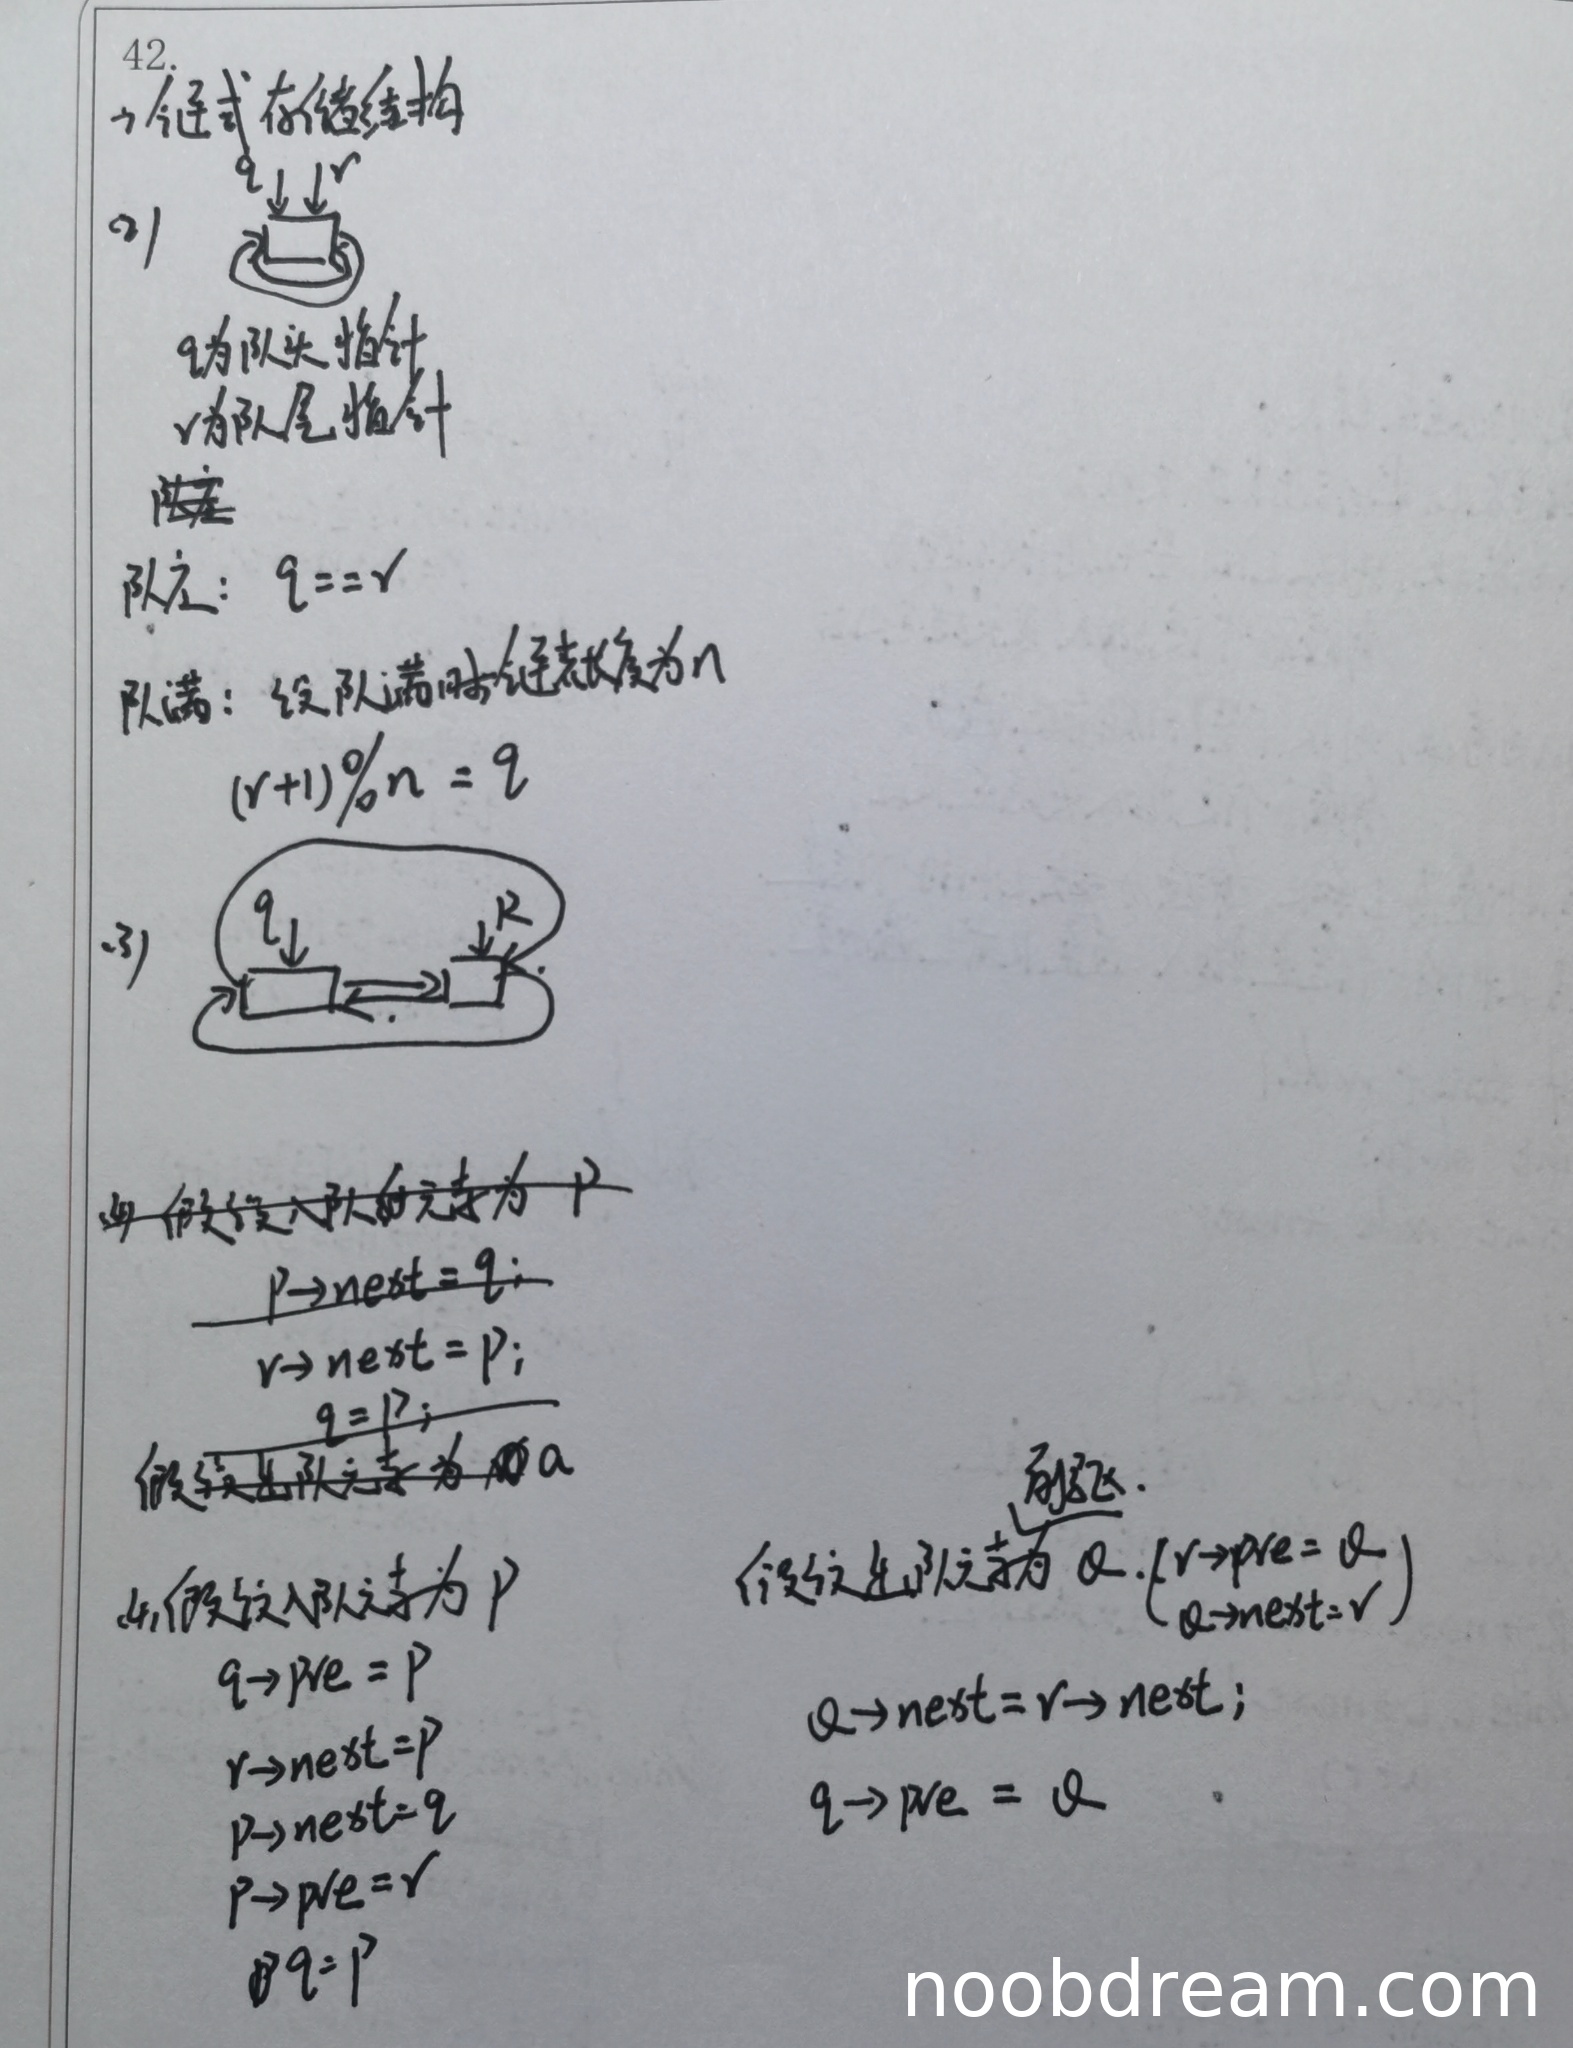 42.
1) 链式存储结构
q r
2)
q为队头指针
r为队尾指针
队空
队空: q==r
队满: 设队满时链表长度为n
(r+1)%n = q
3)
q R
(4) 假设入队的元素为 P
P→next=q;
r→next=P;
q=P;
假设出队元素为 a
(4) 假设入队元素为 P
q→pre=P
r→next=P
P→next=q
P→pre=r
q=P
前驱.
假设出队元素为 a. (r→pre=a
a→next=r)
a→next=r→next;
q→pre = a
noobdream.com